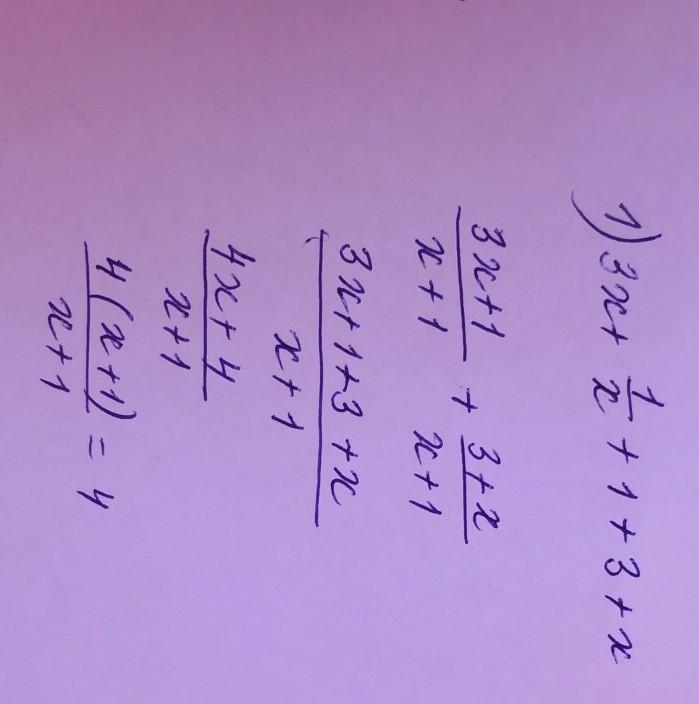 1) 3x + 1/x + 1 + 3 + x
3x+1/x+1 + 3+x/x+1
3x+1+3+x/x+1
4x+4/x+1
4(x+1)/x+1 = 4